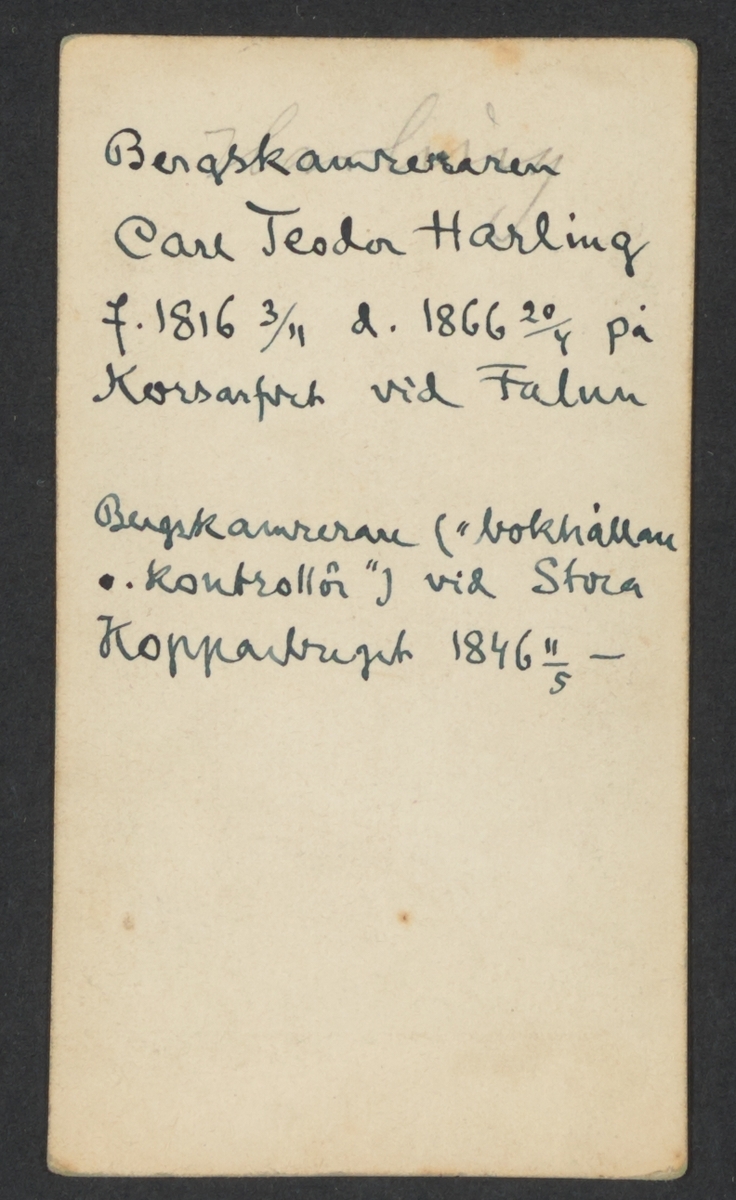 Harling
Bergskamreraren
Carl Teodor Harling
f. 1816 3/11 d. 1866 20/4 på
Korsarfvet vid Falun
Bergskamrerare ("bokhållare
o. kontrollör") vid Stora
Kopparberget 1846 11/5 —